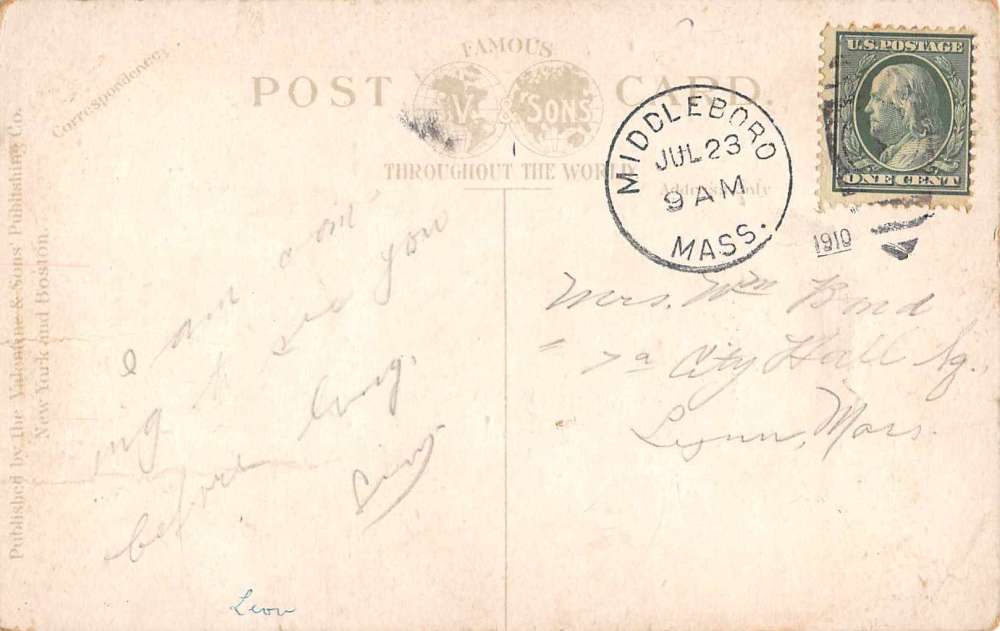 FAMOUS
POST CARD.
V. & SONS
THROUGHOUT THE WORLD
Correspondence.
Address only
Published by The Valentine & Sons' Publishing Co.
New York and Boston.
U.S. POSTAGE
ONE CENT
MIDDLEBORO
JUL 23
9 AM
MASS.
1910
I am com
ing to see you
before long.
Mrs. Wm Bond
7a City Hall Sq.,
Lynn, Mass.
Leon